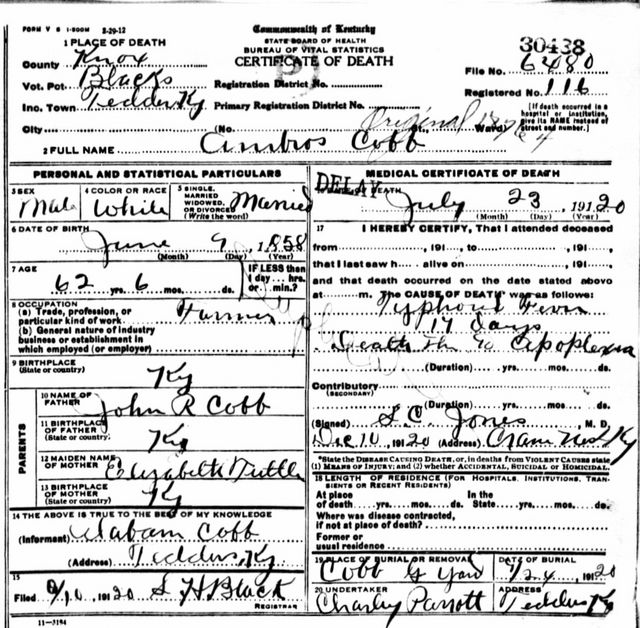 FORM V S 1-500M 8-29-12
Commonwealth of Kentucky
STATE BOARD OF HEALTH
BUREAU OF VITAL STATISTICS
CERTIFICATE OF DEATH
1 PLACE OF DEATH
County Knox
Vot. Pct. Blacks
Inc. Town Tedders Ky
City
Registration District No.
Primary Registration District No.
(No. Ward)
30438
File No. 6480
Registered No. 116
[If death occurred in a hospital or institution, give its NAME instead of street and number.]
Original
2 FULL NAME Ambros Cobb
PERSONAL AND STATISTICAL PARTICULARS
3 SEX Male
4 COLOR OR RACE White
5 SINGLE, MARRIED WIDOWED, OR DIVORCED (Write the word) Married
6 DATE OF BIRTH June 9, 1858
(Month) (Day) (Year)
7 AGE 62 yrs. 6 mos. ds.
IF LESS than 1 day ... hrs. or ... min.?
8 OCCUPATION
(a) Trade, profession, or particular kind of work. Farmer
(b) General nature of industry business or establishment in which employed (or employer)
9 BIRTHPLACE
(State or country) Ky
PARENTS
10 NAME OF FATHER John R Cobb
11 BIRTHPLACE OF FATHER
(State or country) Ky
12 MAIDEN NAME OF MOTHER Elizabeth Tuttle
13 BIRTHPLACE OF MOTHER
(State or country) Ky
14 THE ABOVE IS TRUE TO THE BEST OF MY KNOWLEDGE
(Informant) Cobb
(Address) Tedders, Ky
15
Filed 9/10, 1920 S H Black
REGISTRAR
11-3194
MEDICAL CERTIFICATE OF DEATH
DELAY
DATE OF DEATH
July 23, 1920
(Month) (Day) (Year)
17 I HEREBY CERTIFY, That I attended deceased
from, 191, to, 191,
that I last saw h alive on, 191,
and that death occurred on the date stated above
at m. The CAUSE OF DEATH* was as follows:
Typhoid Fever
17 days
Death due to Apoplexia
(Duration) yrs. mos. ds.
Contributory
(SECONDARY)
(Duration) yrs. mos. ds.
(Signed) S.C. Jones, M. D.
10, 1920 (Address) Ky
*State the DISEASE CAUSING DEATH, or, in deaths from VIOLENT CAUSES state (1) MEANS OF INJURY; and (2) whether ACCIDENTAL, SUICIDAL OR HOMICIDAL.
18 LENGTH OF RESIDENCE (FOR HOSPITALS, INSTITUTIONS, TRANSIENTS OR RECENT RESIDENTS)
At place of death yrs. mos. ds. In the State yrs. mos. ds.
Where was disease contracted,
if not at place of death?
Former or
usual residence
19 PLACE OF BURIAL OR REMOVAL Cobb G Yard
DATE OF BURIAL 7/24, 1920
20 UNDERTAKER Charley Parrott
ADDRESS Tedders Ky